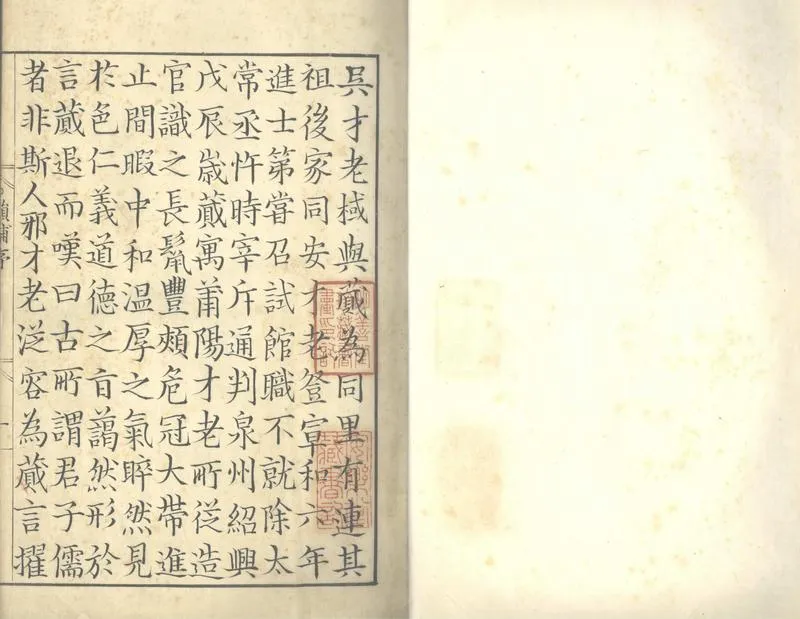 吳才老棫與蕆為同里有連其
祖後家同安才老登宣和六年
進士第嘗召試館職不就除太
常丞忤時宰斥通判泉州紹興
戊辰歲蕆寓莆陽才老所從造
官識之長鬣豐頰危冠大帶進
止間暇中和溫厚之氣睟然見
於色仁義道德之旨藹然形於
言蕆退而嘆曰古所謂君子儒
者非斯人邪才老從容為蕆言擢
韻補序